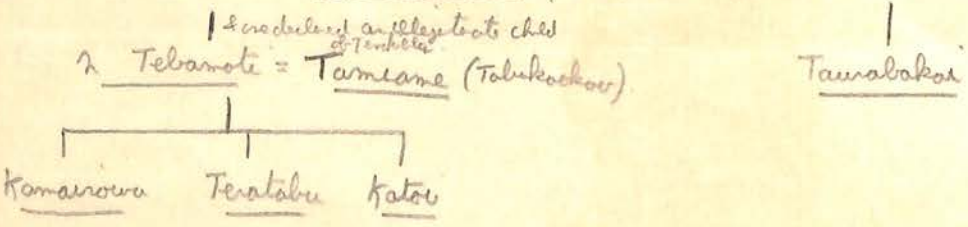 an illegitimate child
of
2 Tebamoti = Tamiame (Tabukaokao) Taurabakai
Kamairowa Teratabu Katou